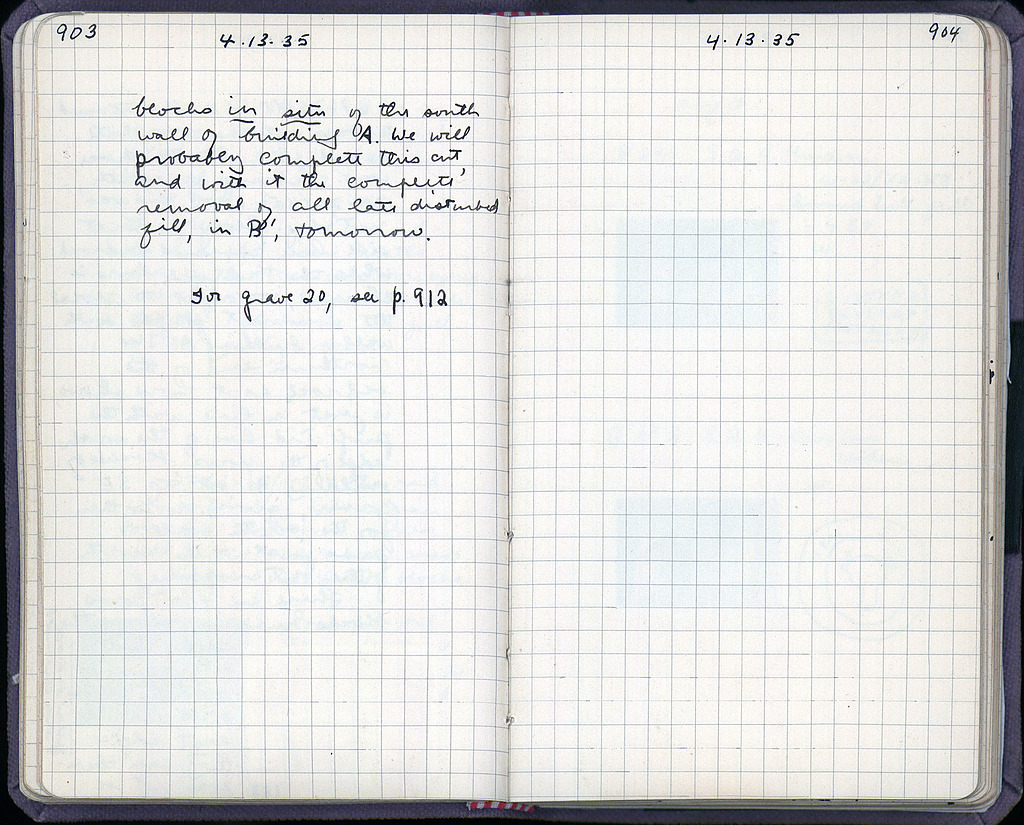 903
4.13.35
blocks in situ of the south
wall of building A. We will
probably complete this cut,
and with it the complete
removal of all late disturbed
fill, in B', tomorrow.
For grave 20, see p. 912
4.13.35
904